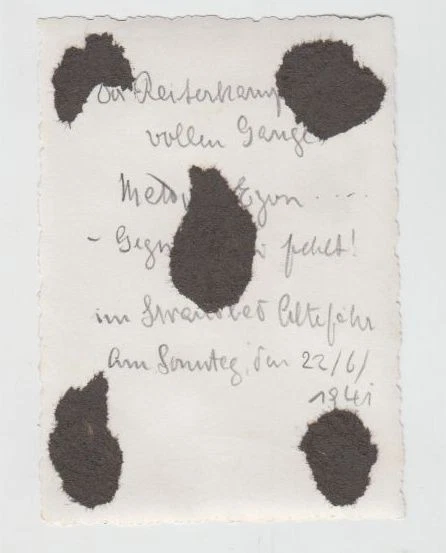 Reiterkamp
vollen Gange
- Gegn fehlt!
im Strandbad Altefähr
Am Sonntag, den 22/6/
1941